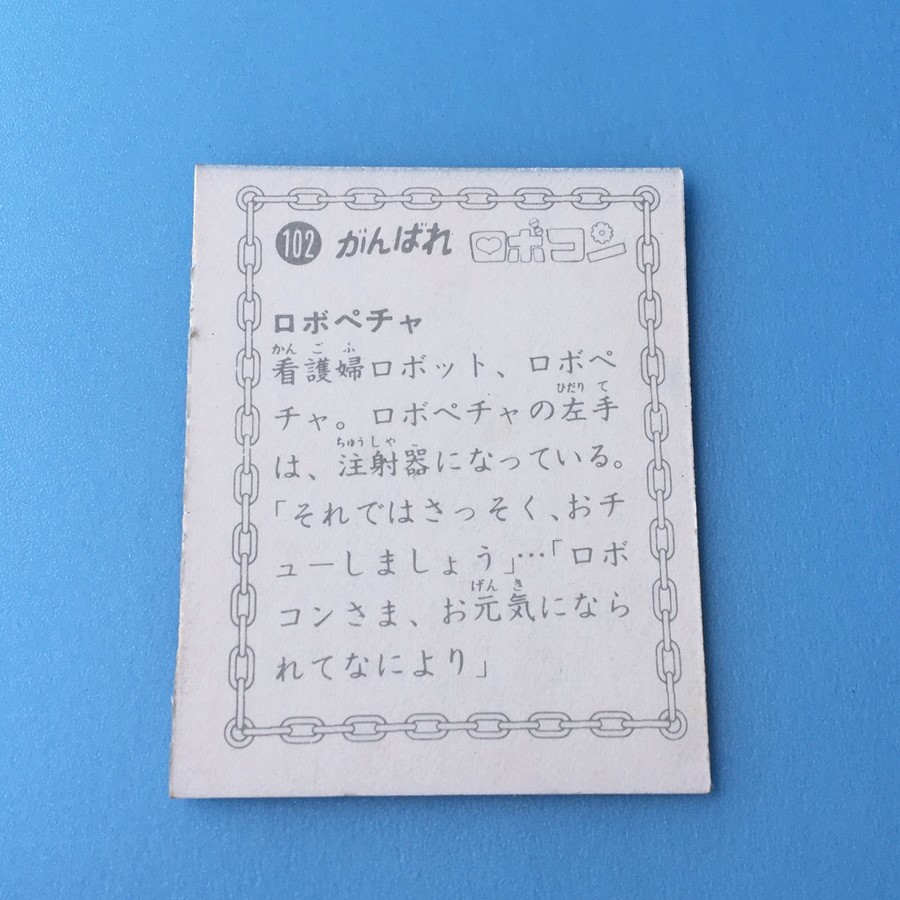 102 がんばれ ロボコン
ロボペチャ
かんごふ
看護婦ロボット、ロボペ
ひだり て
チャ。ロボペチャの左手
ちゅうしゃ
は、注射器になっている。
「それではさっそく、おチ
ューしましょう」…「ロボ
げん き
コンさま、お元気になら
れてなにより」